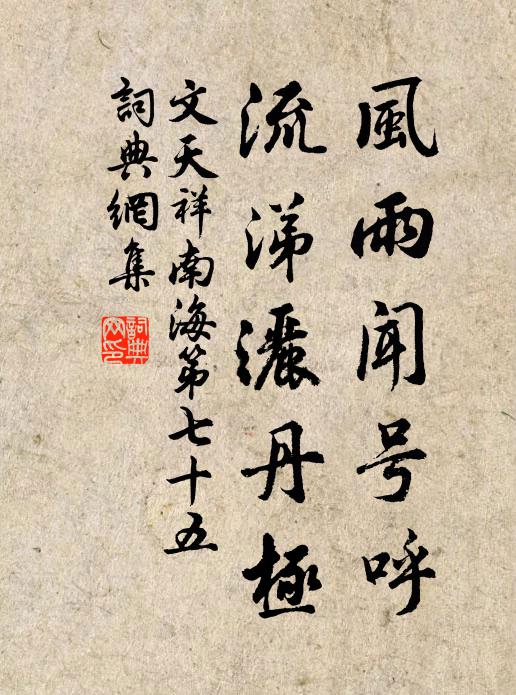 風雨聞号呼
流涕灑丹極
文天祥南海第七十五
詞典網集
詞典網印